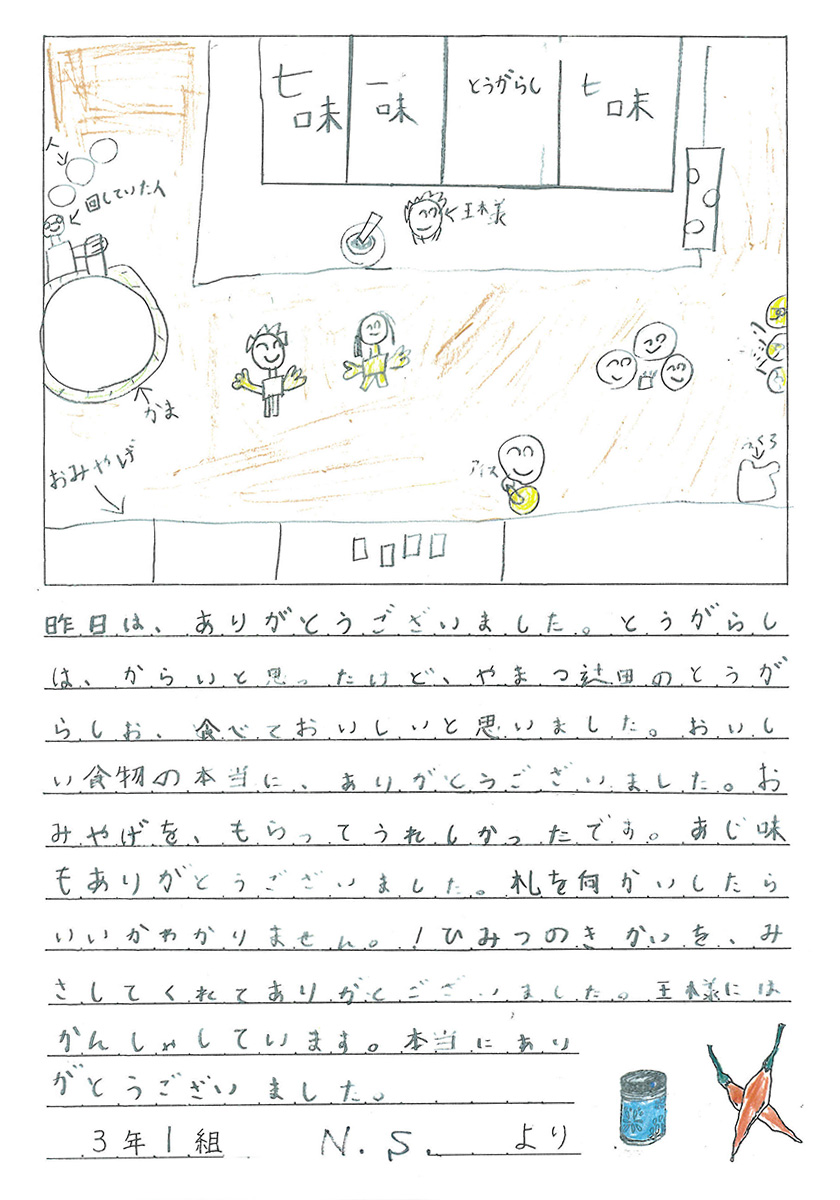 七味
一味
とうがらし
七味
人
回していた人
王様
かま
おみやげ
アイス
ふくろ
昨日は、ありがとうございました。とうがらし
は、からいと思ったけど、やまつ辻田のとうが
らしお、食べておいしいと思いました。おいし
い食物の本当に、ありがとうございました。お
みやげを、もらってうれしかったです。あじ味
もありがとうございました。札を何かいしたら
いいかわかりません。！ひみつのきかいを、み
さしてくれてありがとございました。王様には
かんしゃしています。本当にあり
がとうございました。
3年1組 N.S. より